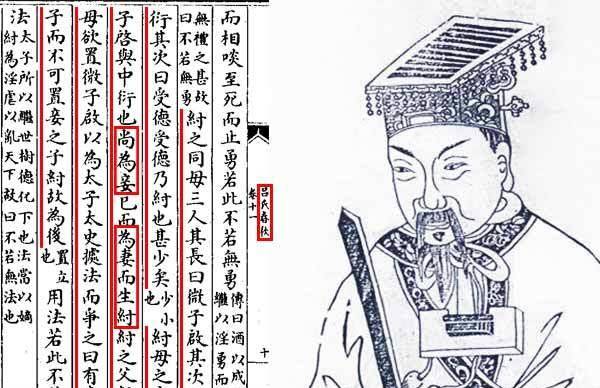 呂氏春秋
卷十一
十
而相啖至死而止勇若此不若無勇
傳曰酒以成
繼以淫勇而
無禮之甚故
曰不若無勇
紂之同母三人其長曰微子啟其次
衍其次曰受德受德乃紂也甚少矣
少小
也
紂母之
子啟與中衍也尚為妾已而為妻而生紂紂之父
母欲置微子啟以為太子太史據法而爭之曰有
子而不可置妾之子紂故為後
置立
也
用法若此不
法
太子所以繼世樹德化下也法當以嫡
紂為淫虐以亂天下故曰不若無法也